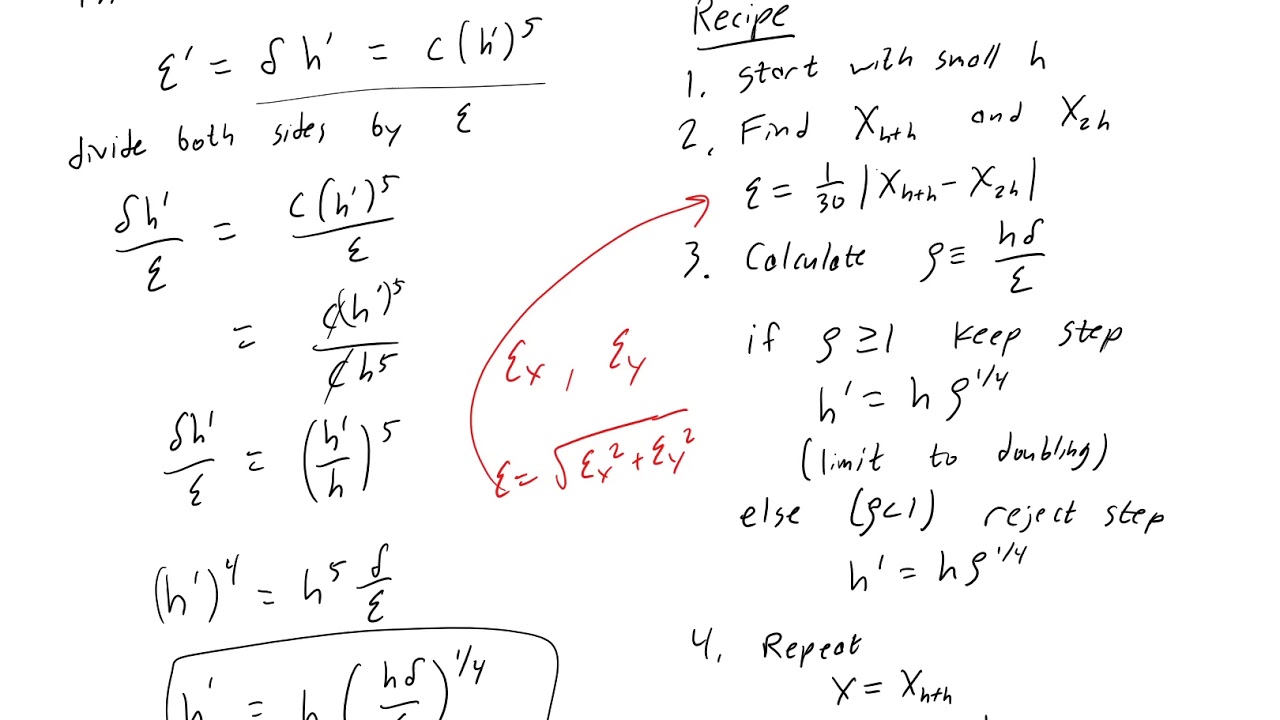 ε' = δ h' = c (h')⁵
divide both sides by ε
δh'/ε = c(h')⁵/ε
= c(h')⁵/ch⁵
δh'/ε = (h'/h)⁵
(h')⁴ = h⁵ δ/ε
h' = h (hδ/ε)^1/4
εx , εy
ε = √εx² + εy²
Recipe
1. start with small h
2. Find Xh+h and X2h
ε = 1/30 |Xh+h - X2h|
3. Calculate ρ ≡ hδ/ε
if ρ ≥ 1 keep step
h' = h ρ^1/4
(limit to doubling)
else (ρ<1) reject step
h' = h ρ^1/4
4. Repeat
X = Xh+h